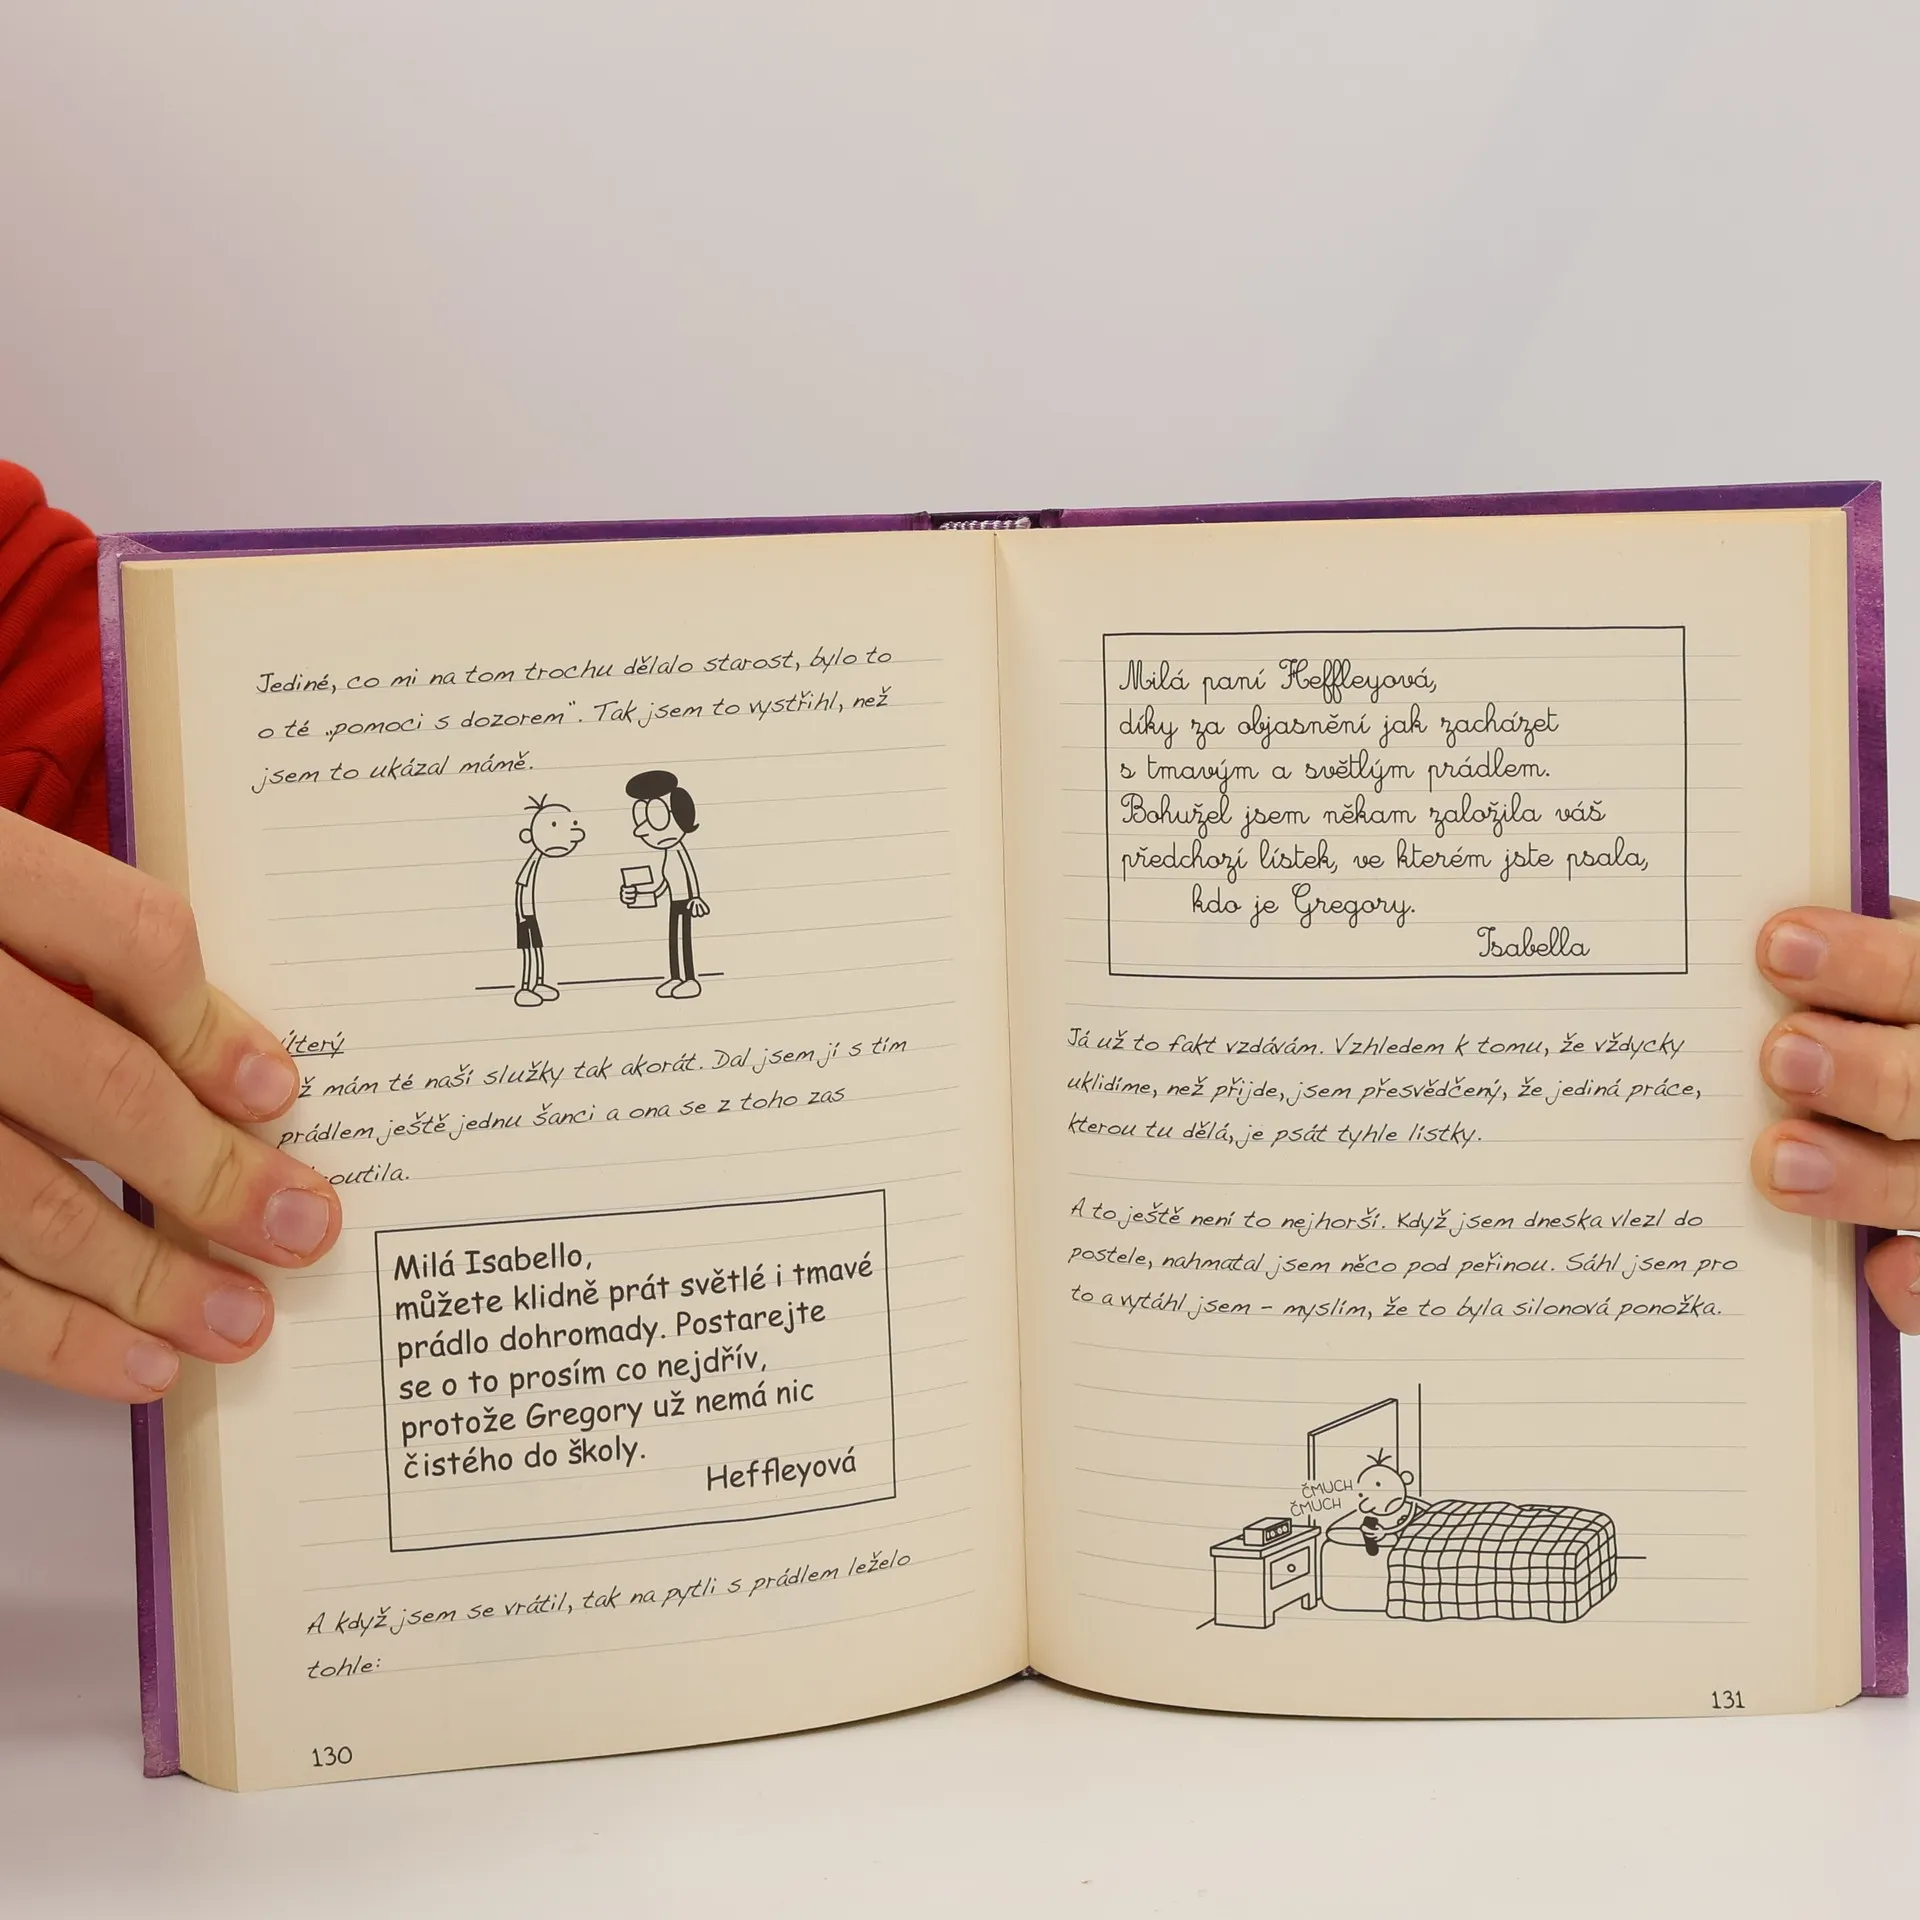 Jediné, co mi na tom trochu dělalo starost, bylo to
o té „pomoci s dozorem“. Tak jsem to vystřihl, než
jsem to ukázal mámě.
Úterý
mám té naší služky tak akorát. Dal jsem jí s tím
prádlem ještě jednu šanci a ona se z toho zas
Milá Isabello,
můžete klidně prát světlé i tmavé
prádlo dohromady. Postarejte
se o to prosím co nejdřív,
protože Gregory už nemá nic
čistého do školy.
Heffleyová
A když jsem se vrátil, tak na pytli s prádlem leželo
tohle:
130
Milá paní Heffleyová,
díky za objasnění jak zacházet
s tmavým a světlým prádlem.
Bohužel jsem někam založila váš
předchozí lístek, ve kterém jste psala,
kdo je Gregory.
Isabella
Já už to fakt vzdávám. Vzhledem k tomu, že vždycky
uklidíme, než přijde, jsem přesvědčený, že jediná práce,
kterou tu dělá, je psát tyhle lístky.
A to ještě není to nejhorší. Když jsem dneska vlezl do
postele, nahmatal jsem něco pod peřinou. Sáhl jsem pro
to a vytáhl jsem – myslím, že to byla silonová ponožka.
ČMUCH
ČMUCH
131